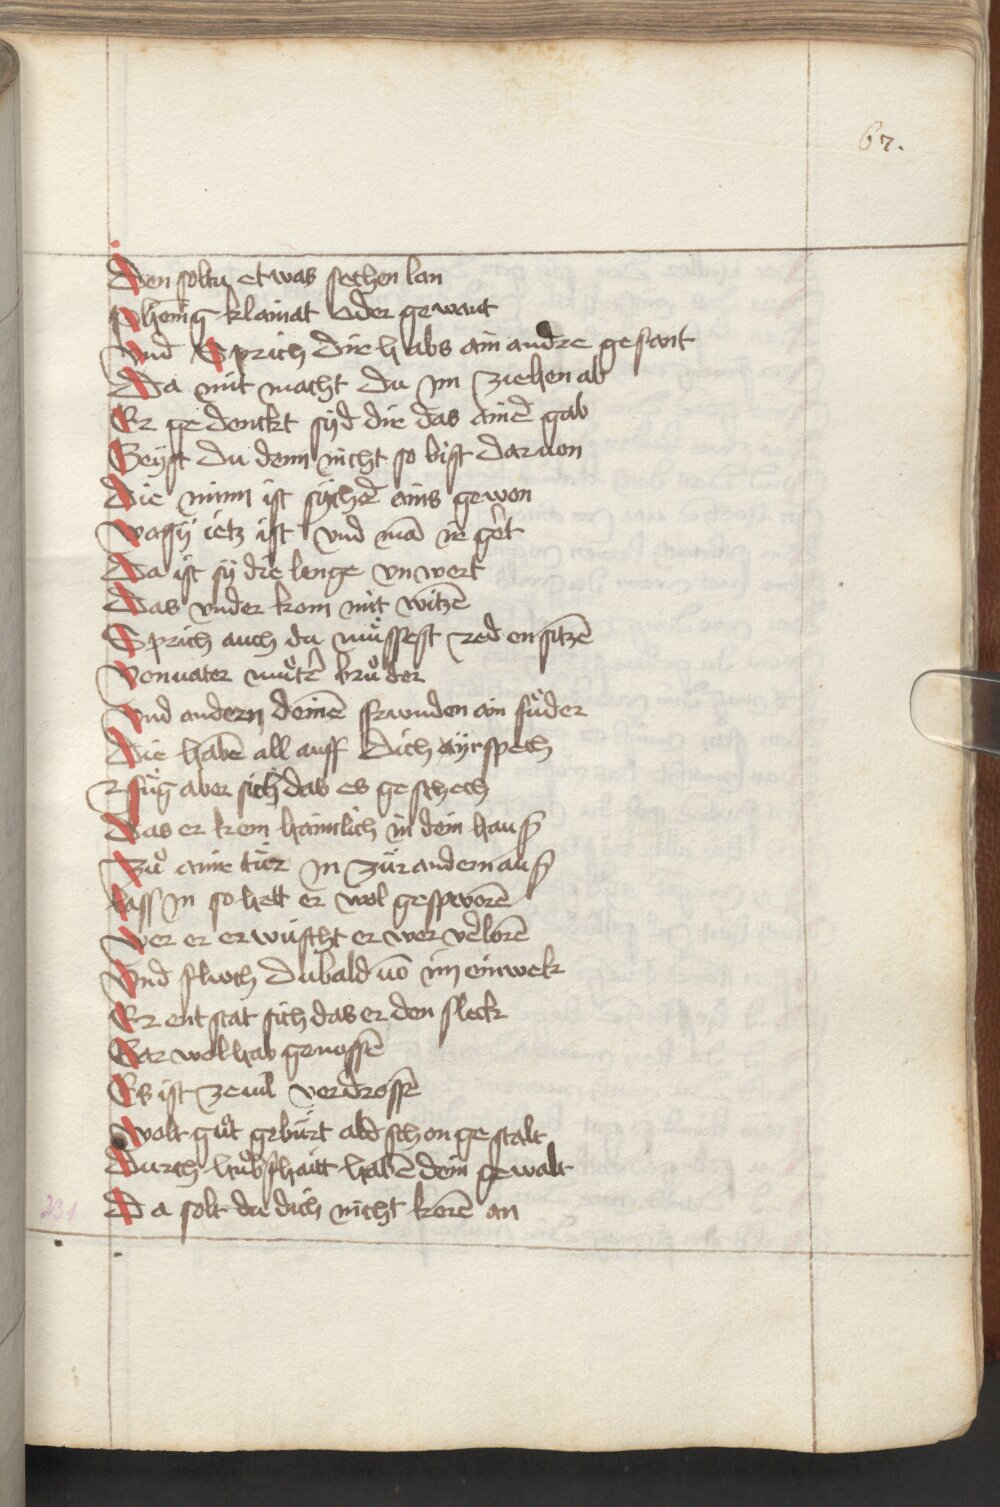 67.
Den soltu etwas sechen lan
Phening klainat oder gewant
Vnd Sprich die habs ain andre gesant
Da mit macht du im ziehen ab
Er gedenckt syd die das aine͂ gab
Geyst du denn nicht so bist daruon
Die minn ist sӱche͂ ains gewon
Was sӱ ietz ist vnd ma͂ ir gert
Da ist sӱ die lenge vnwert
Das vnder kom mit witze͂
Sprich auch du mu̍ssest red ensitze͂
Von vater mu̍te͂ bru̍der
Vnd andern deine͂ frunden ain fu̍der
Die habe͂ all auff dich ӱrspech
fu̍g aber sich das es geschech
Das er kem haimlich in dein hauß
Zu̍ aine tu̍r in zu̍r andern auß
lass in so hett er wol geswore͂
Wer er erwüscht er wer v͂lore͂
Vnd fluch du bald uo͂ im einwek
Er entstat sich das er den fleck
Gar wol hab genosse͂
Es ist zeuil verdrosse͂
Wolt gu̍t geburt ald schon gestalt
Durch hu̍bschaitt habe͂ dein gewalt
Da solt du dich nicht kere͂ an
231